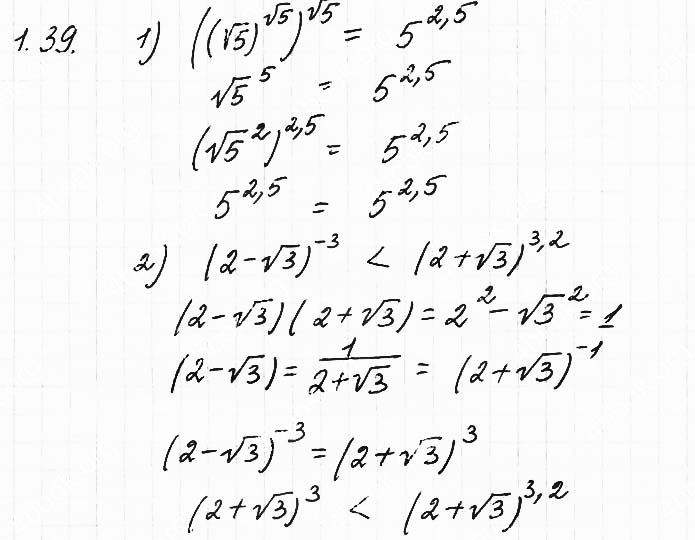 1.39. 1) ((√5)^√5)^√5 = 5^2,5
√5^5 = 5^2,5
(√5^2)^2,5 = 5^2,5
5^2,5 = 5^2,5
2) (2-√3)^-3 < (2+√3)^3,2
(2-√3)(2+√3) = 2^2 - √3^2 = 1
(2-√3) = 1/(2+√3) = (2+√3)^-1
(2-√3)^-3 = (2+√3)^3
(2+√3)^3 < (2+√3)^3,2